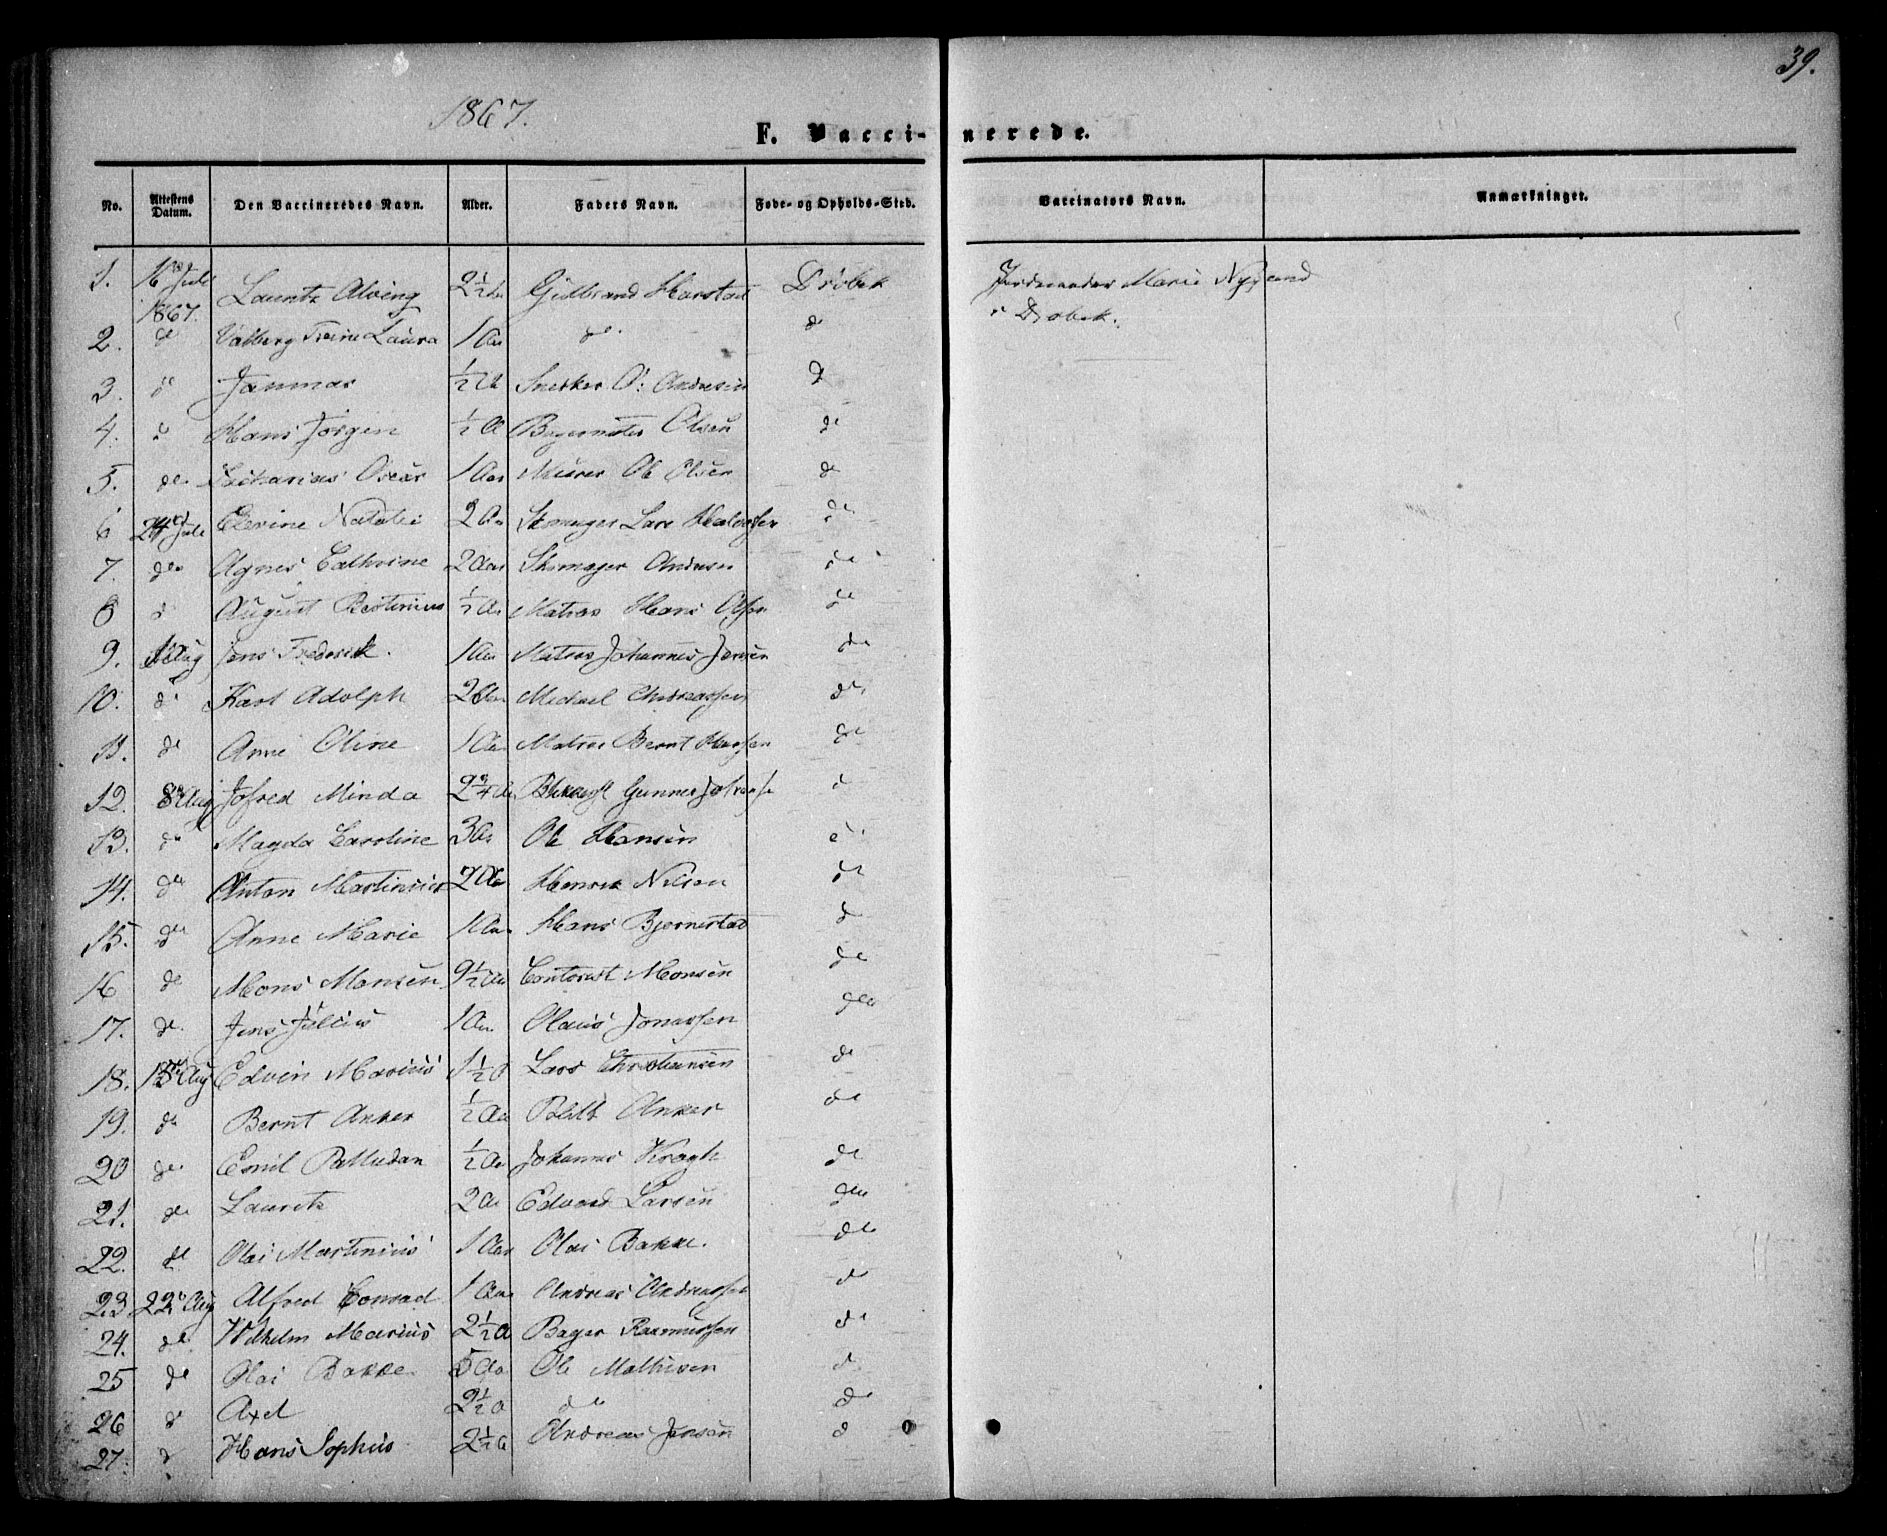 39.
1867.
F. Vacci-nerede.
No. Attestens Datum. Den Vaccineredes Navn. Alder. Faders Navn. Føde- og Opholds-Sted. Vaccinators Navn. Anmærkninger.
1. 16 Juli 1867. Lauritz Alving 2½ Gulbrand Harstad Drøbak Jordemoder Marie
i Drøbak.
2. do Valborg Trine Laura 1 Aar do do
3. do Janmar ½ A Snekker O: Andresen do
4. do Hans Jørgen ½ A Olsen do
5. do Zacharias Oscar 1 Aar Murer Ole Olsen do
6 24 Juli Elevine Natalie 2 Aar Skomager Lars do
7. do Agnes Cathrine 2 Aar Skomager Andresen do
8 do August ½ Aar Matros Hans Olsen do
9. 1 Aug Jens Frederik. 1 Aar Matros Johannes Jensen do
10. do Karl Adolph 2 Aar Michael Andreassen do
11. do Anne Oline 1 Aar Matros Bernt Hansen do
12. 8 Aug Jofred Minda 2¾ Aar Gunner do
13. do Magda Caroline 3 Aar Ole Hansen do
14. do Anton Martinius 2 Aar Henrik Nilsen do
15. do Anne Marie 1 Aar Hans Bjørnestad do
16 do Mons Monsen 9½ Aar Contorist Monsen do
17. do Jens Julius 1 Aar Olaus Jonassen do
18. 15 Aug Edvin Marius 1½ A Lars Christiansen do
19. do Bernt Anker ½ Aar Anker do
20 do Emil Palludan ½ Aar Johannes Kragh do
21. do Lauritz 2 Aar Edvard Larsen do
22. do Olai Martinius 1 Aar Olai Bakke. do
23 22 Aug Alfred Conrad 1 Aar Andreas Andreassen do
24. do Wilhelm Marius 2½ A Bager Rasmussen do
25 do Olai Bakke 5 Aar Ole Mathisen do
26 do Axel 2½ A do do
27. do Hans Sophus 2½ A Andreas Jensen do